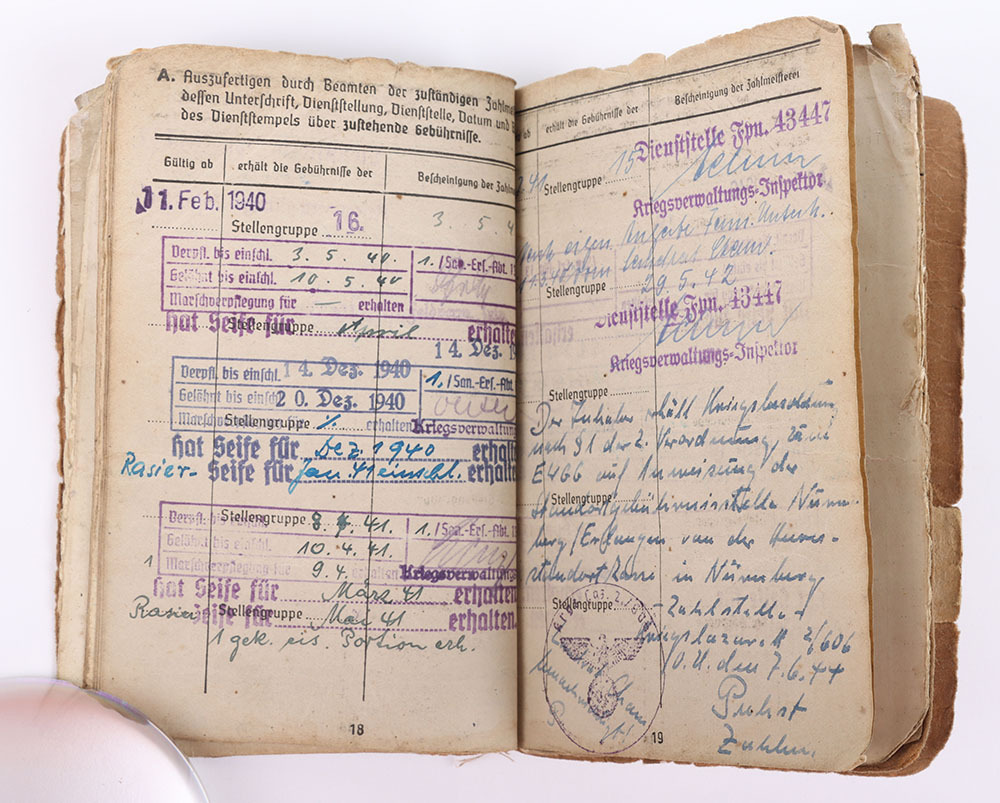 A. Auszufertigen durch Beamten der zuständigen Zahlme
dessen Unterschrift, Dienststellung, Dienststelle, Datum und
des Dienststempels über zustehende Gebührnisse.
Gültig ab erhält die Gebührnisse der Bescheinigung der Zahlm
11. Feb. 1940
Stellengruppe 16. 3. 5. 4
Verpfl. bis einschl. 3. 5. 40. 1./San.-Ers.-Abt. 1
Gelöhnt bis einschl. 10. 5. 40
Marschverpflegung für — erhalten
hat Seife für Stellengruppe April erhalten
14. Dez. 19
Verpfl. bis einschl. 14. Dez. 1940 1./San.-Ers.-Abt.
Gelöhnt bis einschl. 20. Dez. 1940
Marschv Stellengruppe erhalten Kriegsverwaltung
hat Seife für Dez. 1940 erhalte
Rasier- Seife für Jan. erhalte
Verpfl. bis einschl. Stellengruppe 8. 4. 41. 1./San.-Ers.-Abt.
Gelöhnt bis einschl. 10. 4. 41.
Marschverpflegung für 9. 4. erhalten Kriegsverwaltungs
1
hat Seife für März 41 erhalten.
Rasier Seife für Stellengruppe Mai 41 erhalten.
1 gek. eis. Portion erh.
18
ab erhält die Gebührnisse der Bescheinigung der Zahlmeisterei
Dienststelle Fpn. 43447
41 Stellengruppe 15
Kriegsverwaltungs-Inspektor
Stellengruppe 29. 5. 42
Dienststelle Fpn. 43447
Kriegsverwaltungs-Inspektor
Stellengruppe
Der Inhaber erhält Kriegsbesoldung
nach §1 der 2. Verordnung,
E466 auf Anweisung der
Stellengruppe
Standortgebührnisstelle Nürn-
berg/Erlangen von der Heeres-
standortkasse in Nürnberg
Stellengruppe - Zahlstelle -
Kriegslazarett 2/606
O.U. den 7.6.44
Probst
Zahlm.
19